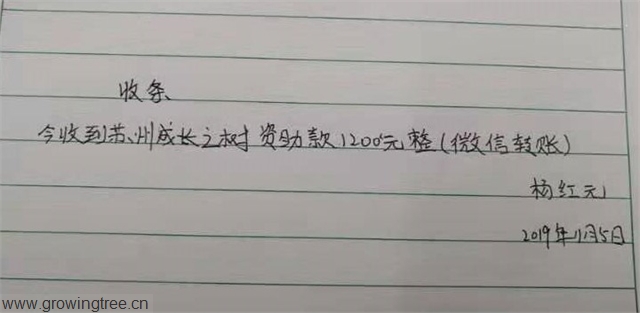 收条
今收到苏州成长之树资助款1200元整(微信转账)
杨红元
2019年11月5日
www.growingtree.cn